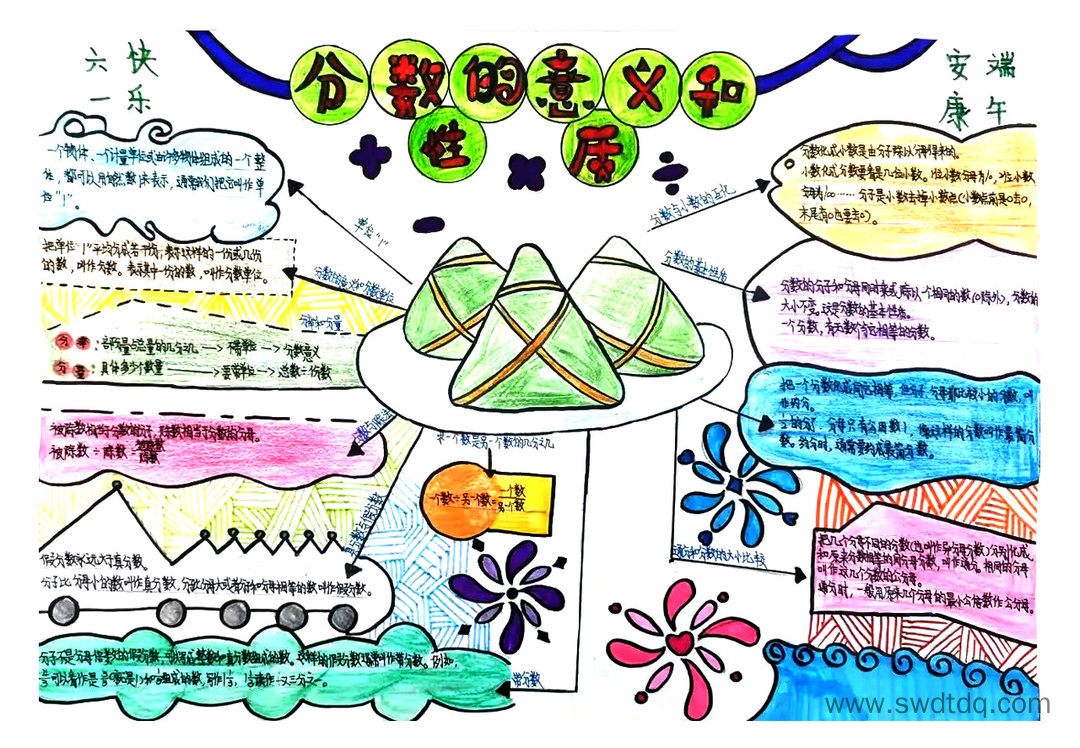 六 快
一 乐
安 端
康 午
分数的意义和
性 质
一个物体、一个计量单位或由许多物体组成的一个整
体，都可以用自然数1来表示，通常我们把它叫作单
位"1"。
单位"1"
把单位"1"平均分成若干份，表示这样的一份或几份
的数，叫作分数。表示其中一份的数，叫作分数单位。
分数的意义和分数单位
分率和分量
分率：部分量与总量的几分几→不带单位→分数意义
分量：具体多少个数量→要带单位→总数÷份数
被除数相当于分数的分子，除数相当于分数的分母。
被除数÷除数=被除数/除数
分数与除法
求一个数是另一个数的几分之几
一个数÷另一个数=一个数/另一个数
真分数与假分数
假分数永远大于真分数。
分子比分母小的数叫作真分数，分子比分母大或者分子和分母相等的数叫作假分数。
带分数
分数与小数的互化
分数化成小数是由分子除以分母得来的。
小数化成分数要看是几位小数。1位小数分母为10，2位小数
分母为100……分子是小数去掉小数点(小数点前是0去0，
末尾有0也要去0)。
分数的基本性质
分数的分子和分母同时乘或除以一个相同的数(0除外)，分数的
大小不变。这是分数的基本性质。
一个分数，有无数个与它相等的分数。
把一个分数化成同它相等，但分子、分母都比较小的分数，叫
作约分。
分子、分母只有公因数1，像这样的分数叫作最简分
数。约分时，通常要约成最简分数。
通分和分数的大小比较
把几个分母不同的分数(也叫作异分母分数)分别化成
和原来分数相等的同分母分数，叫作通分。相同的分母
叫作这几个分数的公分母。
通分时，一般用原来几个分母的最小公倍数作公分母。
www.swdtdq.com